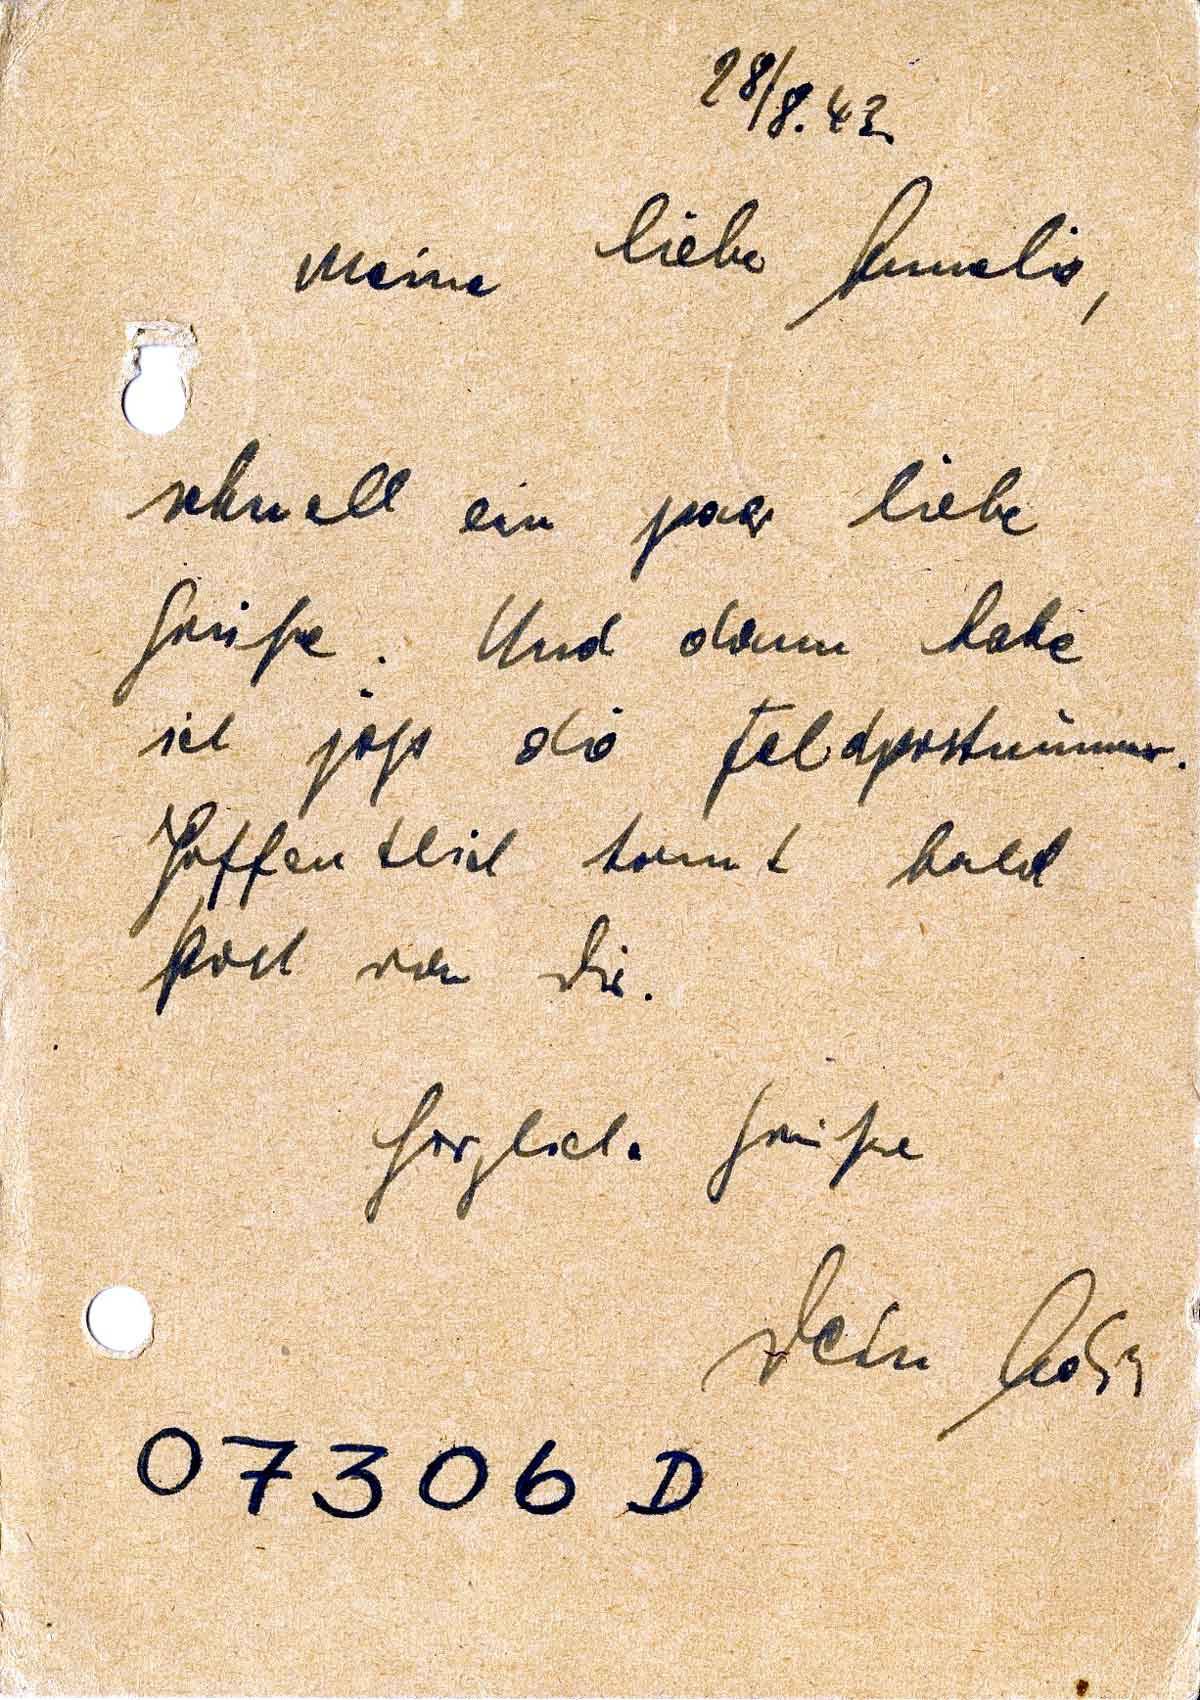 28/8.43.
Meine liebe Annelie,
schnell ein paar liebe
Grüße. Und dann habe
ich die Feldpostnummer.
Hoffentlich kommt bald
Post von Dir.
Herzlich. Grüße
Dein
07306 D